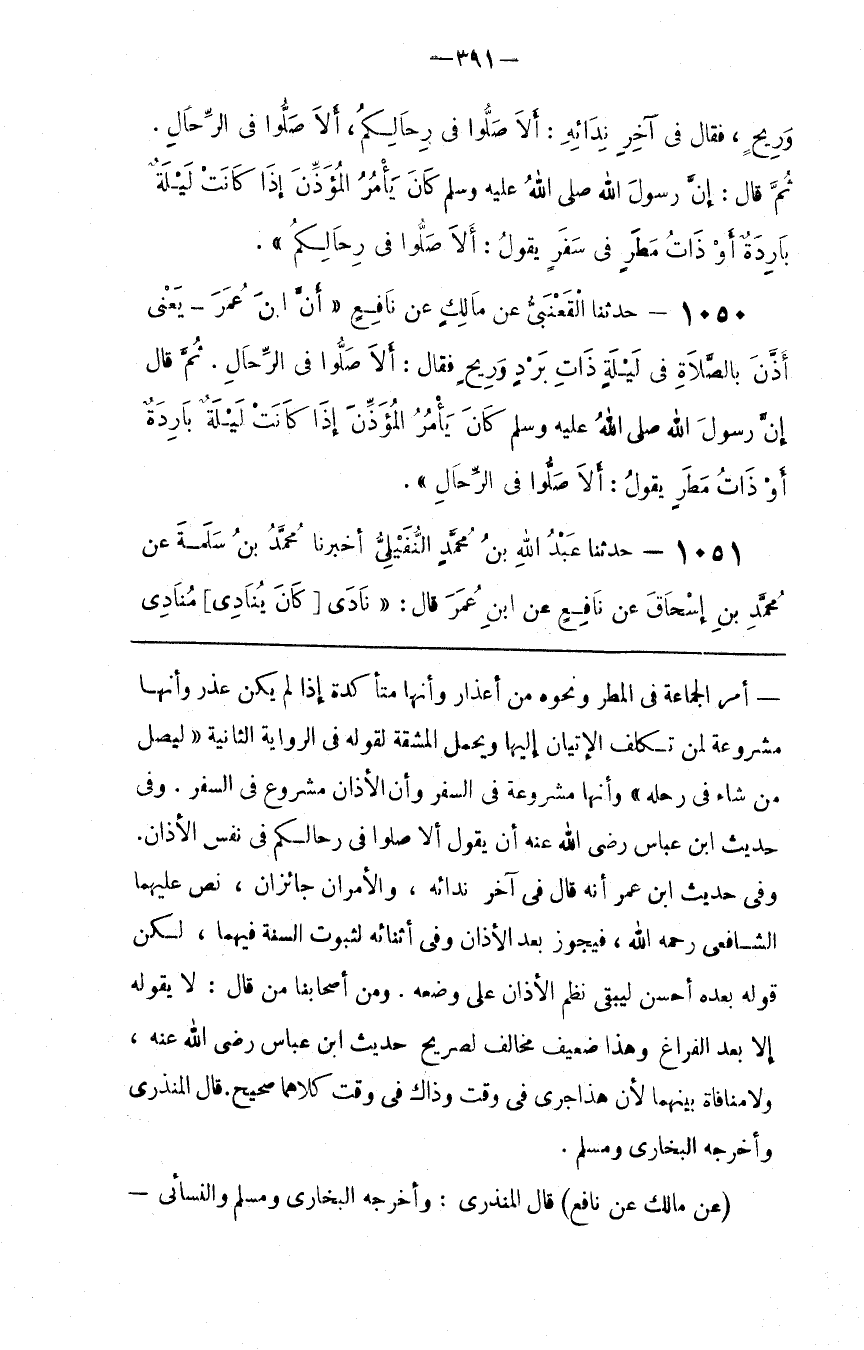 —٣٩١—
وَرِيحٍ ، فقال فى آخِرِ نِدَائِهِ : أَلاَ صَلُّوا فى رِحَالِكُمْ ، أَلاَ صَلُّوا فى الرِّحَالِ .
ثُمَّ قال : إنَّ رسولَ الله صلى اللهُ عليه وسلم كَانَ يَأْمُرُ المُؤَذِّنَ إذَا كَانَتْ لَيْلَةٌ
بَارِدَةٌ أَوْ ذَاتُ مَطَرٍ فى سَفَرٍ يقولُ : أَلاَ صَلُّوا فى رِحَالِكُمْ » .
١٠٥٠ — حدثنا الْقَعْنَبَىُّ عن مَالِكٍ عن نَافِعٍ « أَنَّ ابنَ عُمَرَ – يَعْنِى
أَذَّنَ بالصَّلاَةِ فى لَيْلَةٍ ذَاتِ بَرْدٍ وَرِيحٍ فقال : أَلاَ صَلُّوا فى الرِّحَالِ . ثُمَّ قال
إنَّ رسولَ الله صلى اللهُ عليه وسلم كَانَ يَأْمُرُ المُؤَذِّنَ إذَا كَانَتْ لَيْلَةٌ بَارِدَةٌ
أَوْ ذَاتُ مَطَرٍ يقولُ : أَلاَ صَلُّوا فى الرِّحَالِ » .
١٠٥١ — حدثنا عَبْدُ اللهِ بنُ مُحمَّدٍ النُّفَيْلِىُّ أخبرنا مُحمَّدُ بنُ سَلَمَةَ عن
مُحمَّدِ بنِ إسْحَاقَ عن نَافِعٍ عن ابنِ عُمَرَ قال : « نَادَى [كَانَ يُنَادِى] مُنَادِى
— أمر الجماعة فى المطر ونحوه من أعذار وأنها متأكدة إذا لم يكن عذر وأنها
مشروعة لمن تكلف الإتيان إليها ويحمل المشقة لقوله فى الرواية الثانية « ليصل
من شاء فى رحله » وأنها مشروعة فى السفر وأن الأذان مشروع فى السفر . وفى
حديث ابن عباس رضى الله عنه أن يقول ألا صلوا فى رحالكم فى نفس الأذان.
وفى حديث ابن عمر أنه قال فى آخر ندائه ، والأمران جائزان ، نص عليهما
الشافعى رحمه الله ، فيجوز بعد الأذان وفى أثنائه لثبوت السنة فيهما ، لكن
قوله بعده أحسن ليبقى نظم الأذان على وضعه . ومن أصحابنا من قال : لا يقوله
إلا بعد الفراغ وهذا ضعيف مخالف لصريح حديث ابن عباس رضى الله عنه ،
ولا منافاة بينهما لأن هذا جرى فى وقت وذاك فى وقت كلاهما صحيح. قال المنذرى
وأخرجه البخارى ومسلم .
(عن مالك عن نافع) قال المنذرى : وأخرجه البخارى ومسلم والنسائى —